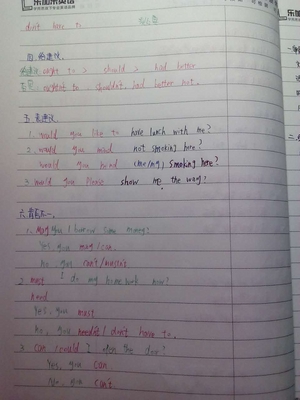 乐加乐英语
don't have to
四.给建议
ought to > should > had better
oughtn't to shouldn't had better not.
五.表建议
1. would you like to have lunch with me?
2. would you mind not smoking here?
would you mind (me/my) smoking here?
3. would you please show me the way?
六.
1. May you I borrow some money?
Yes, you may/can.
No, you can't/mustn't
2. must I do my homework now?
need
Yes, you must
No, you needn't / don't have to.
3. can (could) I open the door?
Yes, you can
No, you can't.